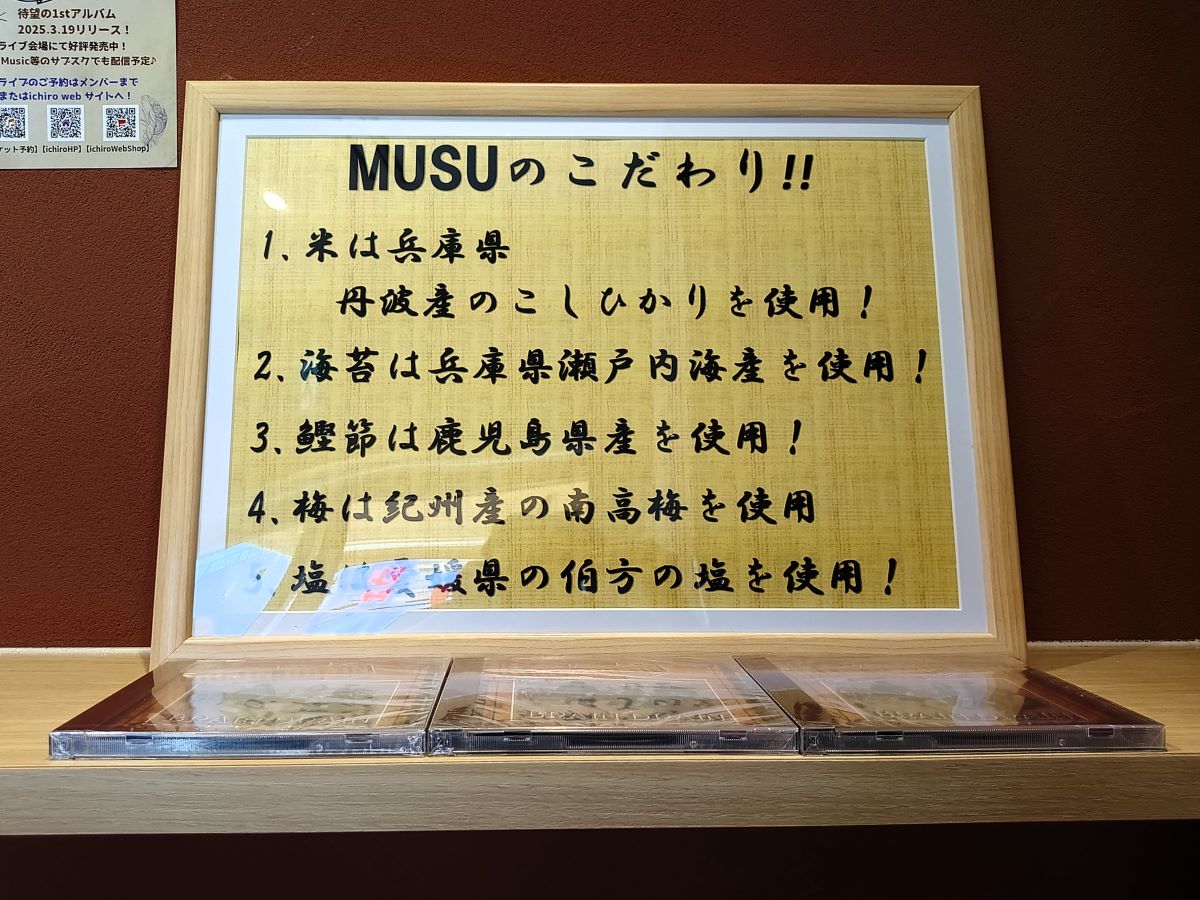 待望の1stアルバム
2025.3.19リリース！
ライブ会場にて好評発売中！
Music等のサブスクでも配信予定♪
ライブのご予約はメンバーまで
またはichiro web サイトへ！
ケット予約】【ichiroHP】【ichiroWebShop】
MUSUのこだわり!!
1、米は兵庫県
丹波産のこしひかりを使用！
2、海苔は兵庫県瀬戸内海産を使用！
3、鰹節は鹿児島県産を使用！
4、梅は紀州産の南高梅を使用
、塩は愛媛県の伯方の塩を使用！